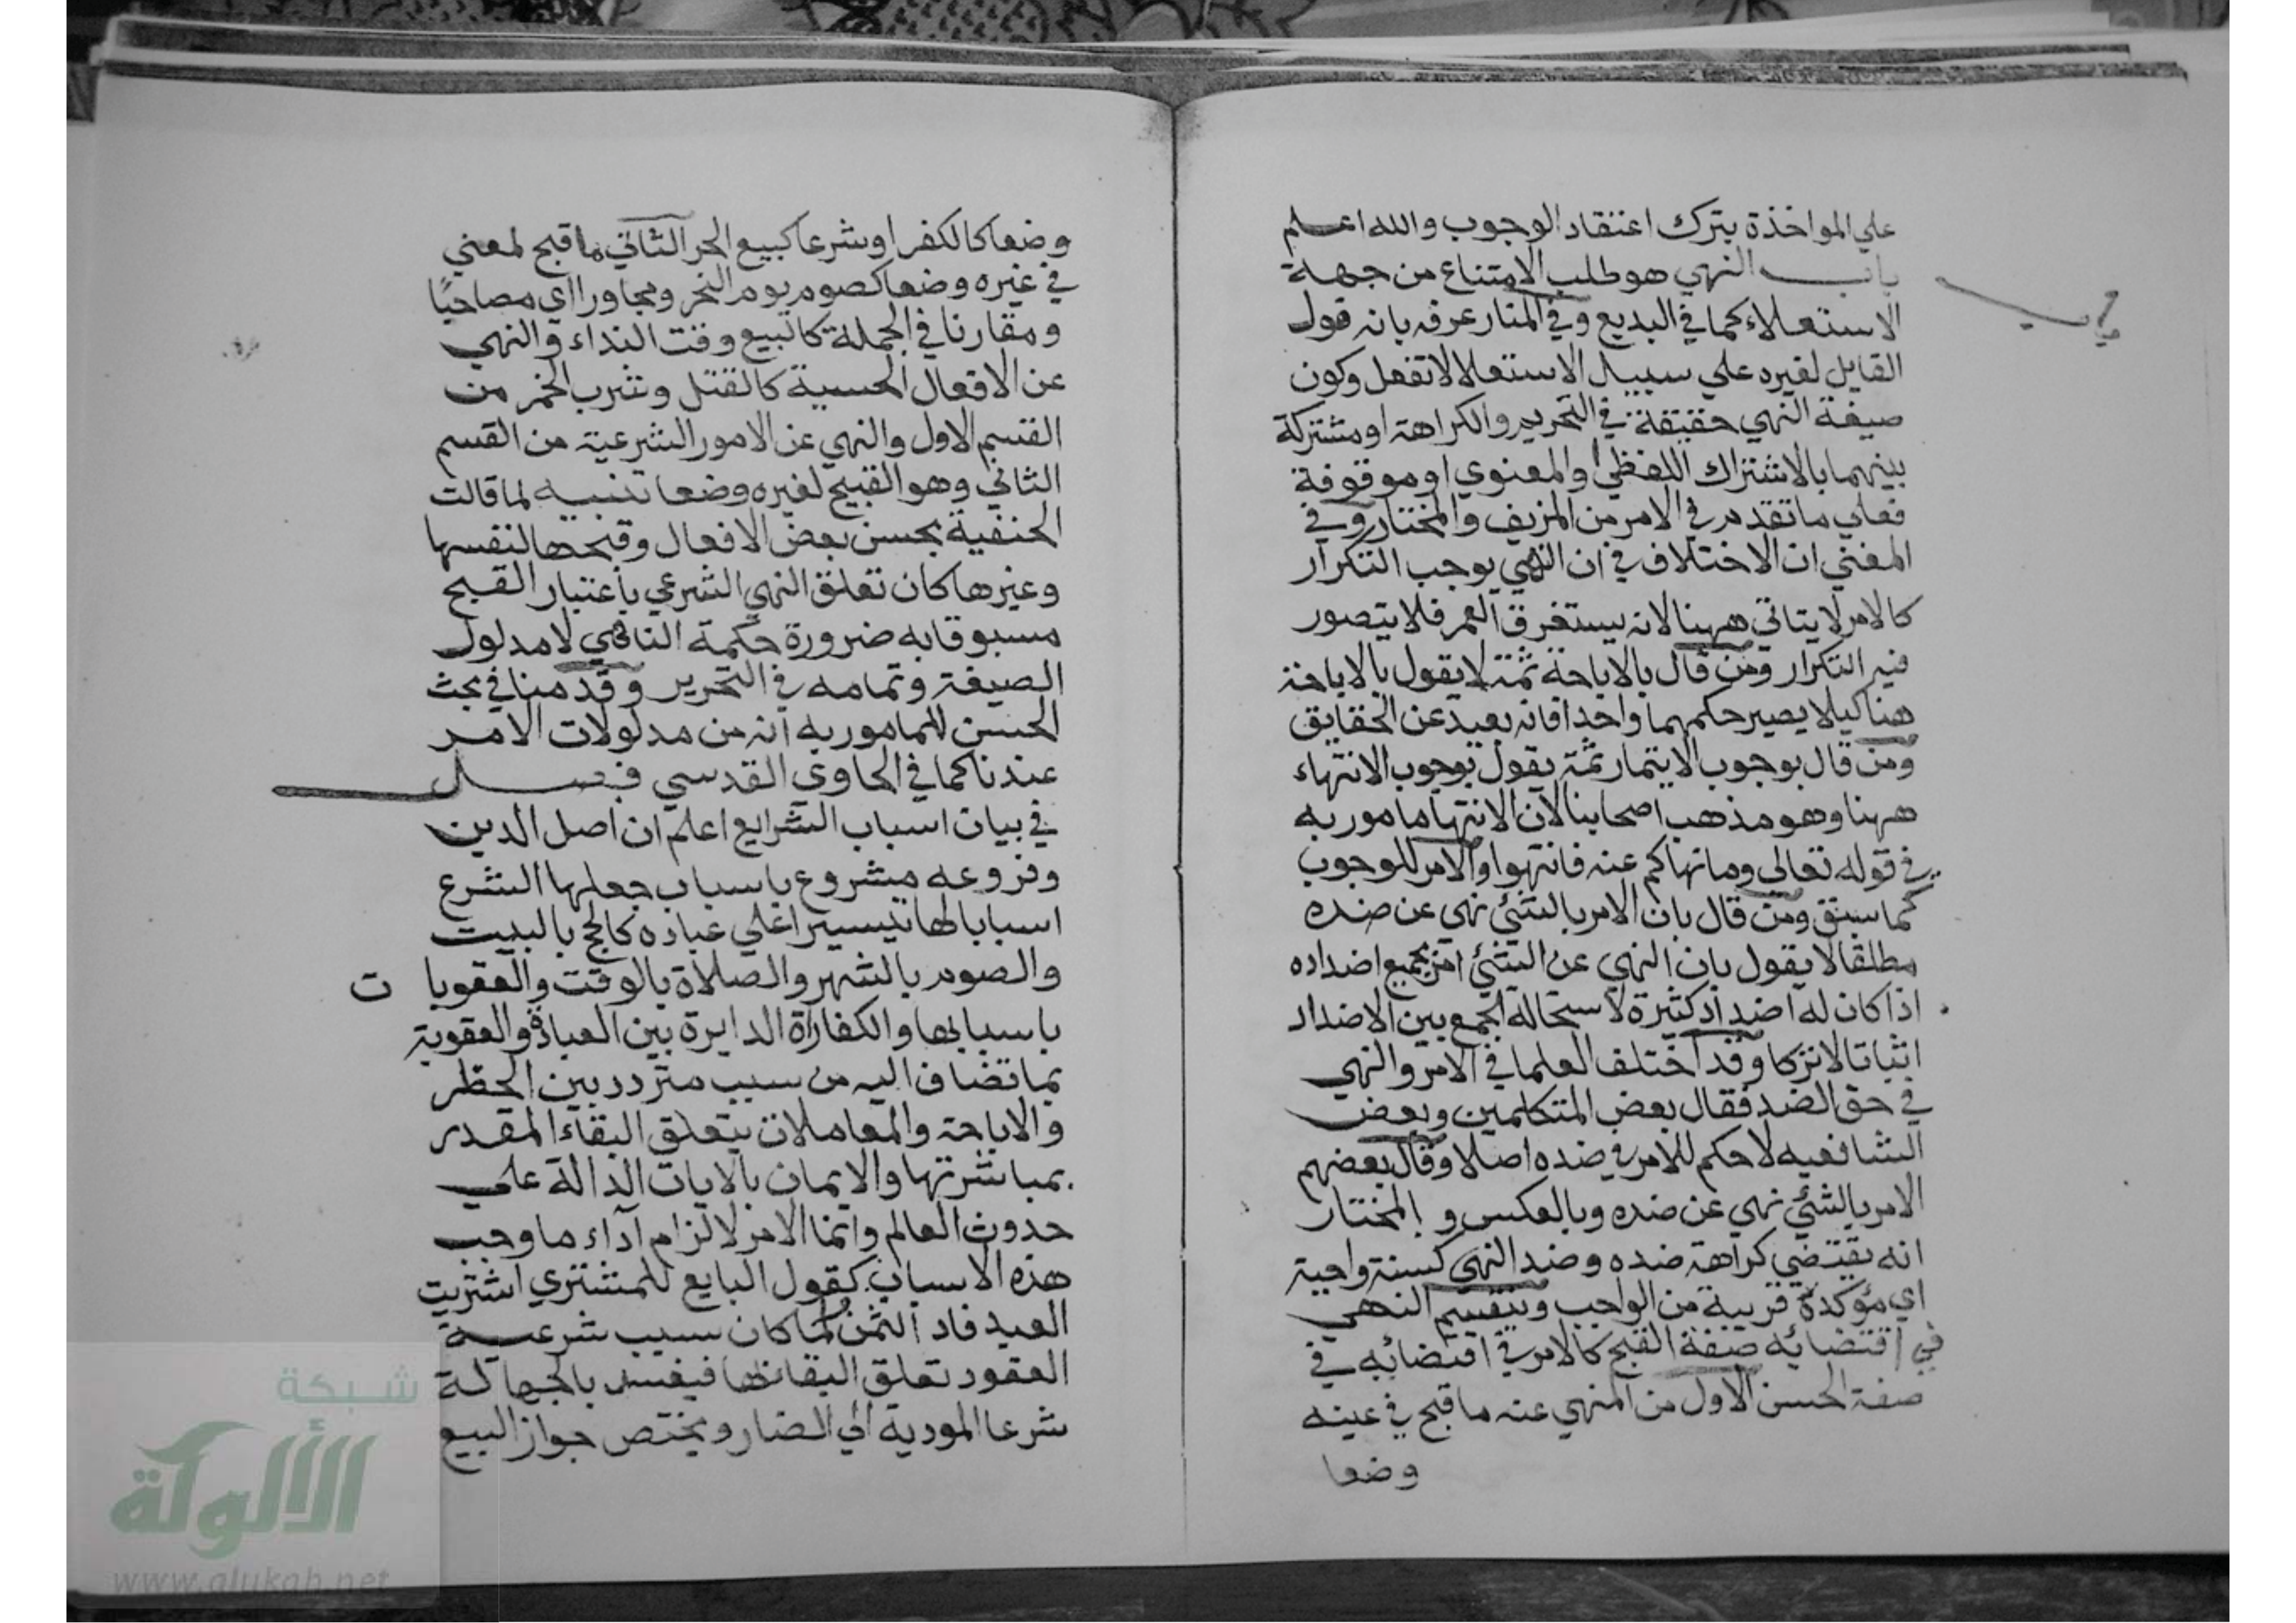 علي المواخذة بترك اعتقاد الوجوب والله اعلم
باب النهي هو طلب الامتناع من جهة
باب
الاستعلاء كما في البديع وفي المنار عرفه بانه قول
القايل لغيره علي سبيل الاستعلا لا تفعل وكون
صيغة النهي حقيقة في التحريم والكراهة او مشتركة
بينهما بالاشتراك اللفظي او المعنوي او موقوفة
فعلي ما تقدم في الامر من المزيف والمختار وفي
المغني ان الاختلاف في ان النهي يوجب التكرار
كالامر لا يتاتي ههنا لانه يستغرق العمر فلا يتصور
فيه التكرار ومن قال بالاباحة ثمة لا يقول بالاباحة
هنا كيلا يصير حكمهما واحدا فانه بعيد عن الحقايق
ومن قال بوجوب الايتمار ثمة يقول بوجوب الانتهاء
ههنا وهو مذهب اصحابنا لان الانتها مامور به
في قوله تعالي وما نهاكم عنه فانتهوا والامر للوجوب
كما سبق ومن قال بان الامر بالشئ نهي عن ضده
مطلقا لا يقول بان النهي عن الشئ امر بجميع اضداده
اذا كان له اضداد كثيرة لاستحالة الجمع بين الاضداد
اثباتا لا تركا وقد اختلف العلما في الامر والنهي
في حق الضد فقال بعض المتكلمين وبعض
الشافعيه لا حكم للامر في ضده اصلا وقال بعضهم
الامر بالشئ نهي عن ضده وبالعكس و المختار
انه يقتضي كراهة ضده وضد النهي كسنة واجبة
اي مؤكدة قريبة من الواجب وينقسم النهي
في اقتضائه صفة القبح كالامر في اقتضائه في
صفة الحسن الاول من المنهي عنه ما قبح في عينه
وضعا
وضعا كالكفر او شرعا كبيع الحر الثاني ما قبح لمعني
في غيره وضعا كصوم يوم النحر ومجاورا اي مصاحبا
ومقارنا في الجملة كالبيع وقت النداء والنهي
عن الافعال الحسية كالقتل وشرب الخمر من
القسم الاول والنهي عن الامور الشرعية من القسم
الثاني وهو القبيح لغيره وضعا تنبيه لما قالت
الحنفية بحسن بعض الافعال وقبحها لنفسها
وغيرها كان تعلق النهي الشرعي باعتبار القبح
مسبوقا به ضرورة حكمة الناهي لا مدلول
الصيغة وتمامه في التحرير وقدمنا في بحث
الحسن للمامور به انه من مدلولات الامر
عندنا كما في الحاوي القدسي فصل
في بيان اسباب الشرايع اعلم ان اصل الدين
وفروعه مشروع باسباب جعلها الشرع
اسبابا لها تيسيرا علي عباده كالحج بالبيت
والصوم بالشهر والصلاة بالوقت والعقوبا ت
باسبابها والكفارة الدايرة بين العبادة والعقوبة
بما تضاف اليه من سبب متردد بين الحظر
والاباحة والمعاملات بتعلق البقاء المقدر
بمباشرتها والايمان بالايات الدالة علي
حدوث العالم وانما الامر لالزام اداء ما وجب
هذه الاسباب كقول البايع للمشتري اشتريت
العبد فاد الثمن لما كان سبب شرعية
العقود تعلق البقا بها فيفسد بالجهالة
شرعا المودية الي الضار ويختص جواز البيع
شبكة
الألوكة
www.alukah.net